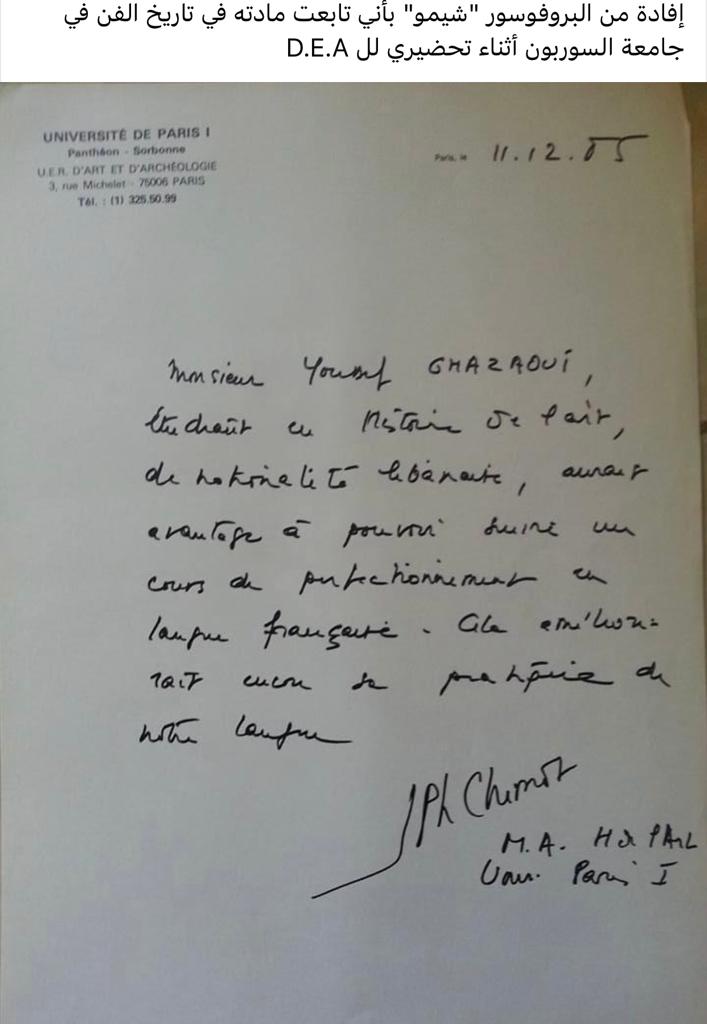 إفادة من البروفوسور "شيمو" بأني تابعت مادته في تاريخ الفن في
جامعة السوربون أثناء تحضيري لل D.E.A
UNIVERSITÉ DE PARIS I
Panthéon - Sorbonne
U.E.R. D'ART ET D'ARCHÉOLOGIE
3, rue Michelet - 75006 PARIS
Tél. : (1) 325.50.99
Paris, le 11.12.85
Monsieur Youssef GHAZAOUÏ,
étudiant en Histoire de l'art,
de nationalité libanaise, aurait
avantage à pouvoir suivre un
cours de perfectionnement en
langue française. Cela amélio-
rait encore sa pratique de
notre langue
Ph Chimot
M.A. H de l'Art
Univ. Paris I